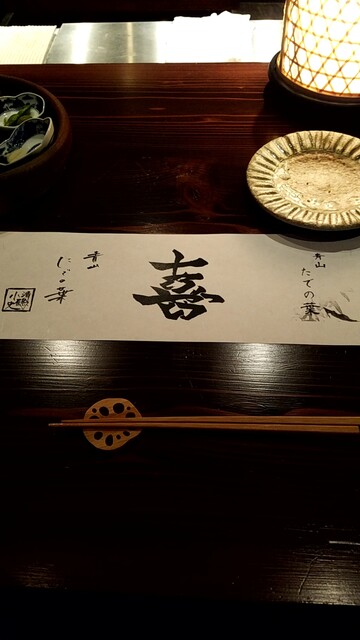 青山
たでの葉
喜
青山
たでの葉